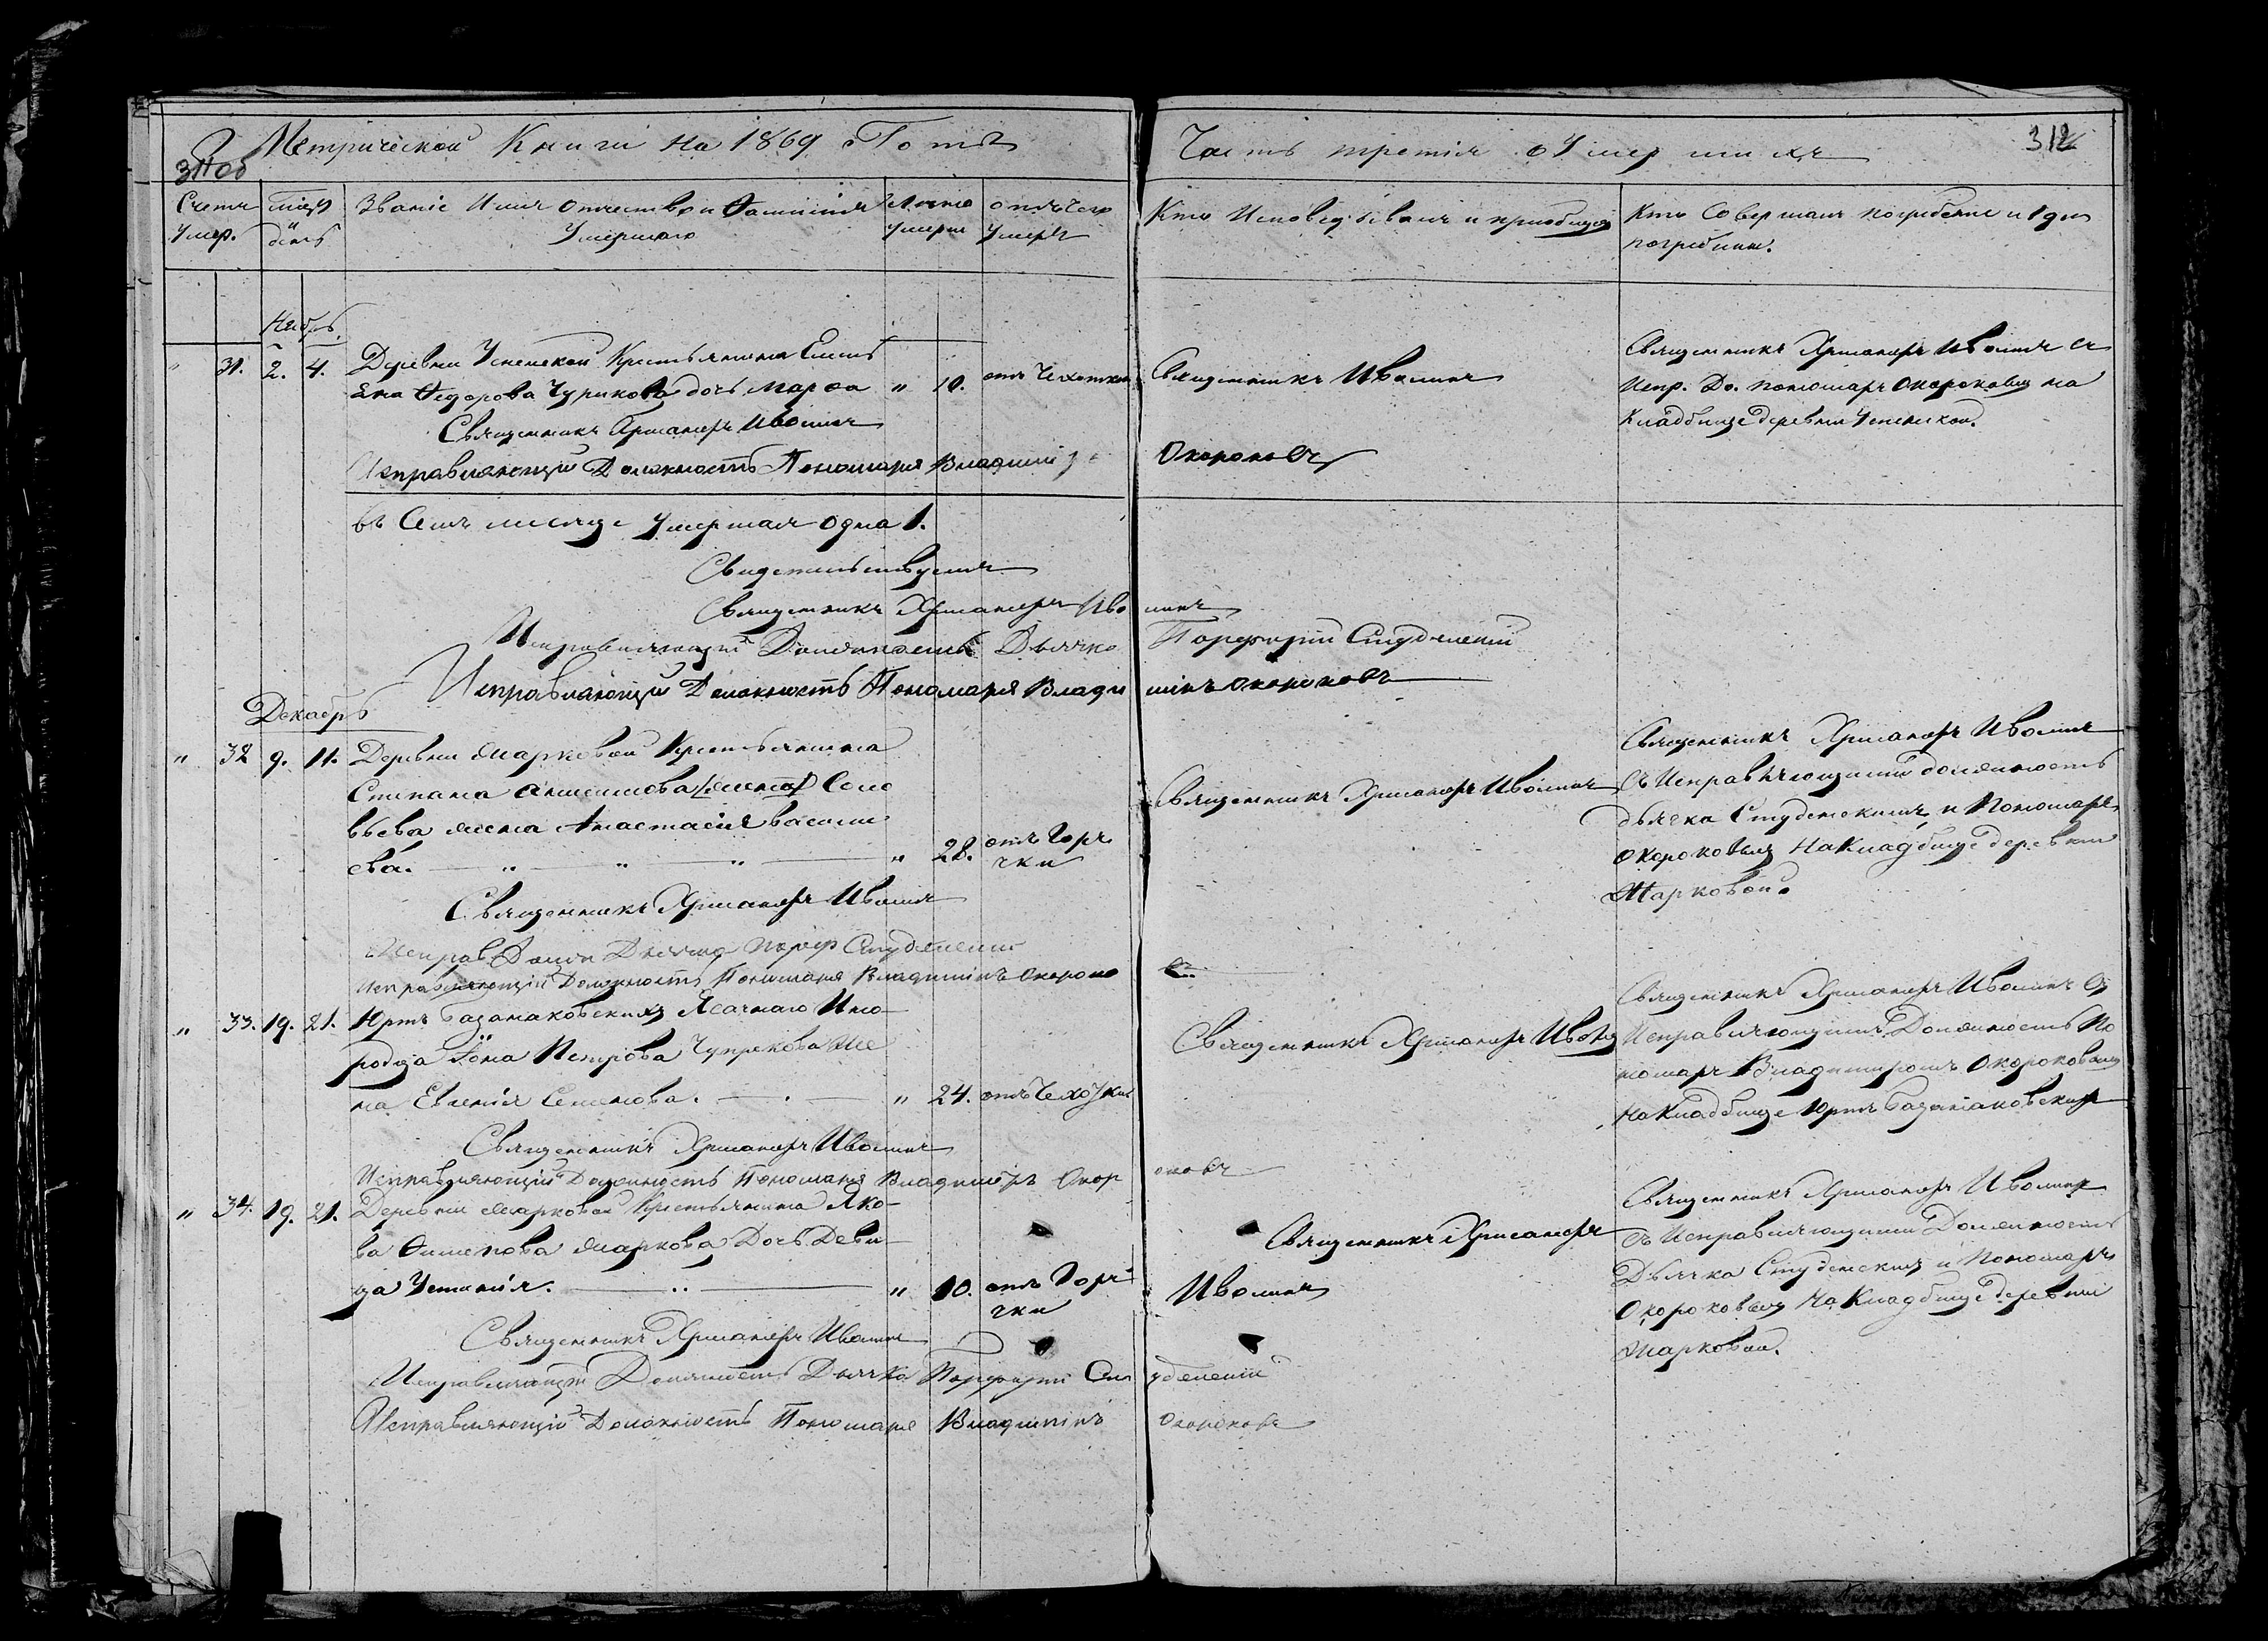 Метрической Книги на 1869 Годъ
311об
Счетъ Умер.
мѣц и день
Званіе Имя Отчество и Фамилія Умершаго
Лѣта умерш
отъ чего Умеръ
Часть третія о Умершихъ
312
Кто Исповѣдывалъ и пріобщалъ
Кто Совершалъ погребеніе и гдѣ
погребены.
" 31. 2. 4. Деревни Успенской Крестьянина
Федорова Чурикова дочь Марѳа " 10. отъ Чехотки
Священникъ Иволинъ
Священникъ Иволинъ съ
Испр. До. пономаря Окороковымъ на
Кладбище деревни Успенской.
Священникъ Иволинъ
Исправляющій Должность Пономаря Владимір Окороковъ
въ Семъ месяце Умершая одна 1.
Свидетельствуемъ
Священникъ Иволинъ
Исправляющій Должность Дьячка Порфирій Студенскій
Исправляющій Должность Пономаря Владиміръ Окороковъ
Декабрь
" 32 9. 11. Деревни Марковой Крестьянина
Степана Соло
вьева жена Анастасія Василь
ева. " 28. отъ Горя
чки
Священникъ Иволинъ
Священникъ Иволинъ
съ Исправляющими должность
дьячка Студенскимъ и Пономаря
Окороковымъ На Кладбище деревни
Марковой.
Священникъ Иволинъ
Исправ Должн Дьячка Порфир Студенскій
Исправляющій Должность Пономаря Владиміръ Окороковъ
" 33. 19. 21. Юртъ Ясачнаго Ино-
родца Петрова Чупрекова Же
на Евгенія Семенова. " 24. отъ Чехотки
Священникъ Ивол
Священникъ Иволинъ съ
Исправляющимъ Должность По
номаря Владимиромъ Окороковымъ
На Кладбище Юртъ
Священникъ Иволинъ
Исправляющій Должность Пономаря Владиміръ Окороковъ
" 34. 19. 21. Деревни Марковой Крестьянина Яко-
ва Маркова Дочь Деви
ца Устинія. " 10. отъ Горя
чки
Священникъ
Иволинъ
Священникъ Иволинъ
съ Исправляющими Должность
Дьячка Студенскимъ и Пономаря
Окороковымъ На Кладбище деревни
Марковой.
Священникъ Иволинъ
Исправляющій Должность Дьячка Порфирій Студенскій
Исправляющій Должность Пономаря Владиміръ Окороковъ